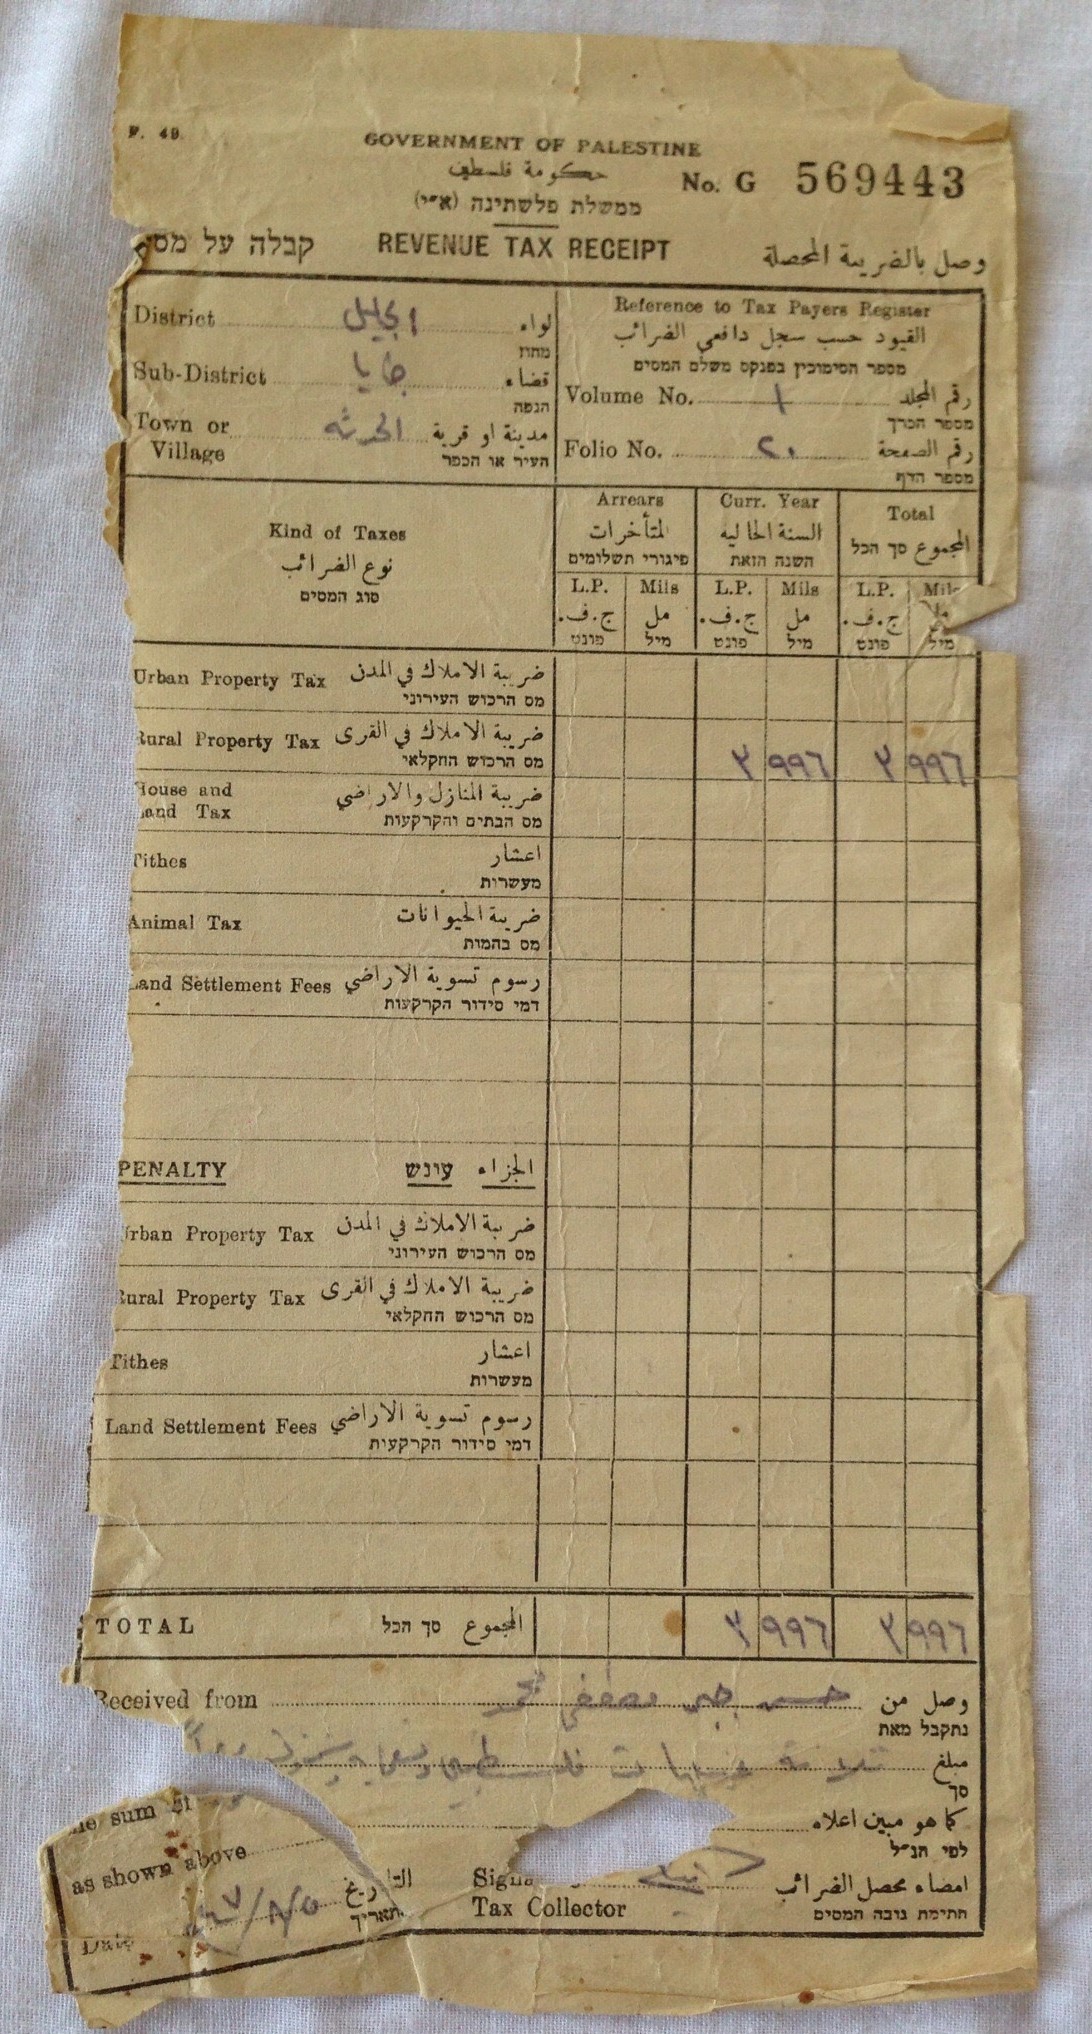 F. 49.
GOVERNMENT OF PALESTINE
حكومة فلسطين
No. G 569443
ממשלת פלשתינה (א״י)
קבלה על מס REVENUE TAX RECEIPT وصل بالضريبة المحصلة
District الجليل لواء
מחוז
Sub-District قضاء
הנפה
Town or Village مدينة او قرية
העיר או הכפר
Reference to Tax Payers Register
القيود حسب سجل دافعي الضرائب
מספר הסימוכין בפנקס משלם המסים
Volume No. ١ رقم المجلد
מספר הכרך
Folio No. ٢٠ رقم الصفحة
מספר הדף
Kind of Taxes
نوع الضرائب
סוג המסים
Arrears Curr. Year Total
المتأخرات السنة الحالية المجموع סך הכל
פיגורי תשלומים השנה הזאת
L.P. Mils L.P. Mils L.P. Mils
ج.ف. مل ج.ف. مل ج.ف. مل
פונט מיל פונט מיל פונט מיל
Urban Property Tax ضريبة الاملاك في المدن
מס הרכוש העירוני
Rural Property Tax ضريبة الاملاك في القرى
מס הרכוש החקלאי
٣ ٩٩٦ ٣ ٩٩٦
House and Land Tax ضريبة المنازل والاراضي
מס הבתים והקרקעות
Tithes اعشار
מעשרות
Animal Tax ضريبة الحيوانات
מס בהמות
Land Settlement Fees رسوم تسوية الاراضي
דמי סידור הקרקעות
PENALTY עונש الجزاء
Urban Property Tax ضريبة الاملاك في المدن
מס הרכוש העירוני
Rural Property Tax ضريبة الاملاك في القرى
מס הרכוש החקלאי
Tithes اعشار
מעשרות
Land Settlement Fees رسوم تسوية الاراضي
דמי סידור הקרקעות
TOTAL סך הכל المجموع ٣ ٩٩٦ ٣ ٩٩٦
Received from مصطفى محمد وصل من
נתקבל מאת
ثلاثة جنيهات مبلغ
סך
the sum of
كما هو مبين اعلاه
as shown above
לפי הנ״ל
التاريخ
תאריך
Date
Signa
Tax Collector
امضاء محصل الضرائب
חתימת גובה המסים